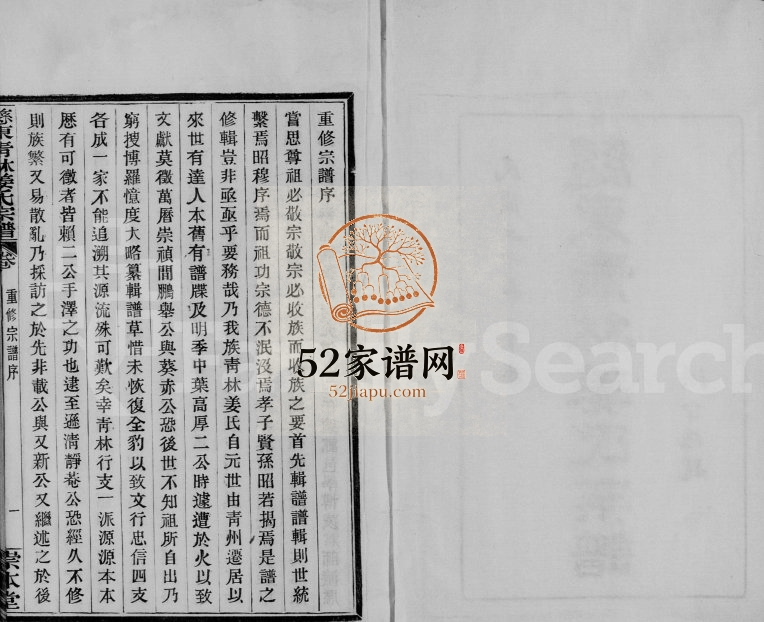 重修宗譜序
嘗思尊祖必敬宗敬宗必收族而收族之要首先輯譜譜輯則世統
繫焉昭穆序焉而祖功宗德不泯沒焉孝子賢孫昭若揭焉是譜之
修輯豈非亟亟乎要務哉乃我族靑林姜氏自元世由靑州遷居以
來世有達人本舊有譜牒及明季中葉高厚二公時遽遭於火以致
文獻莫徵萬厯崇禎間鵬舉公與葵赤公恐後世不知祖所自出乃
窮搜博羅憶度大略纂輯譜草惜未恢復全豹以致文行忠信四支
各成一家不能追溯其源流殊可歎矣幸靑林行支一派源源本本
厯有可徵者皆賴二公手澤之功也逮至遜清靜菴公恐經久不修
則族繁又易散亂乃採訪之於先非載公與又新公又繼述之於後
東靑林姜氏宗譜
卷
重修宗譜序
一
崇本堂
52家谱网
52jiapu.com
Search